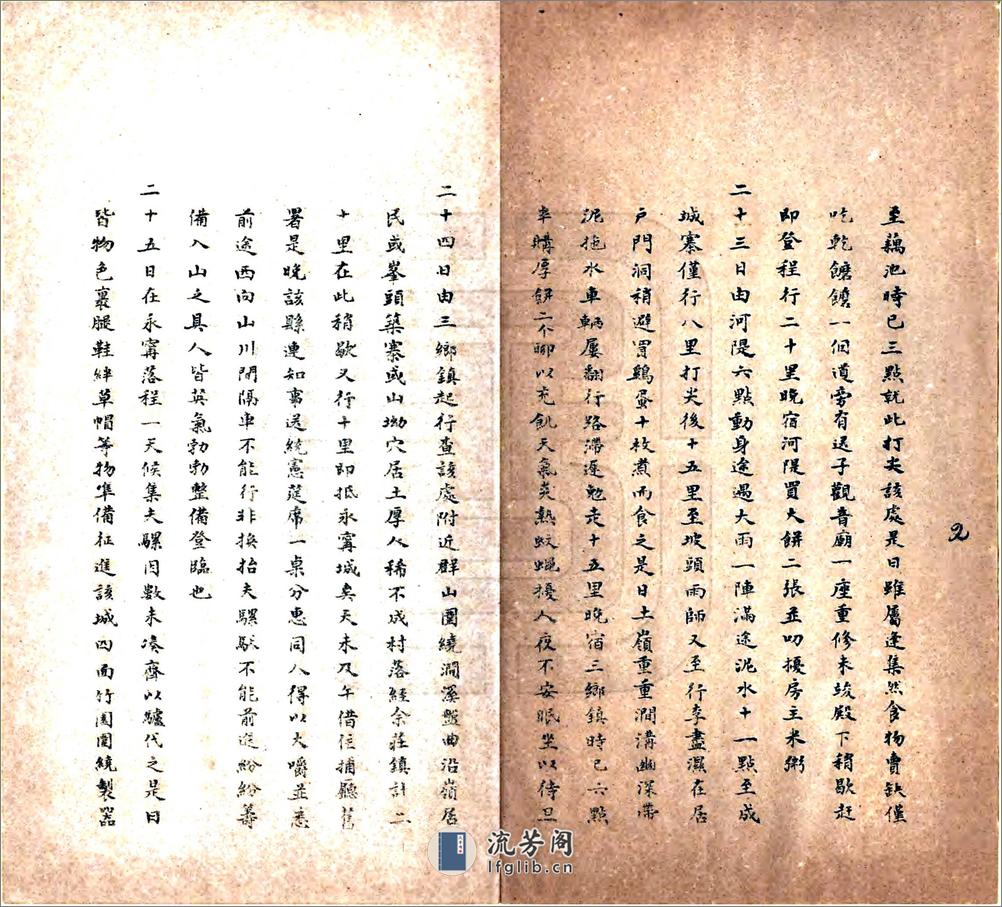 至藕池時已三點就此打尖該處是日雖屬逢集然食物賣缺僅
吃乾饝饝一個道旁有送子觀音廟一座重修未竣殿下稍歇赶
即登程行二十里晚宿河隄買大餅二張並叨擾房主米粥
二十三日由河隄六點動身途遇大雨一陣滿途泥水十一點至成
城寨僅行八里打尖後十五里至坡頭雨師又至行李盡濕在居
戶門洞稍避買鷄蛋十枚煮而食之是日土嶺重重澗溝幽深帶
泥拖水車輛屢翻行路滯遲勉走十五里晚宿三鄉鎮時已六點
半購厚餅二个聊以充飢天氣炎熱蚊蝇擾人夜不安眠坐以待旦
二十四日由三鄉鎮起行查該處附近群山圍繞澗溪盤曲沿嶺居
民或峯頭築寨或山坳穴居土厚人稀不成村落經余莊鎮計二
十里在此稍歇又行十里即抵永寗城矣天未及午借住捕廳舊
署是晚該縣連知事送統憲莚席一桌分惠同人得以大嚼並悉
前途西向山川間隔車不能行非換抬夫騾馱不能前進紛紛籌
備入山之具人皆英氣勃勃整備登臨也
二十五日在永寗落程一天候集夫騾因數未凑齊以驢代之是日
皆物色裹腿鞋絆草帽等物準備征進該城四面竹園圍繞製器
2
流芳阁
lfglib.cn